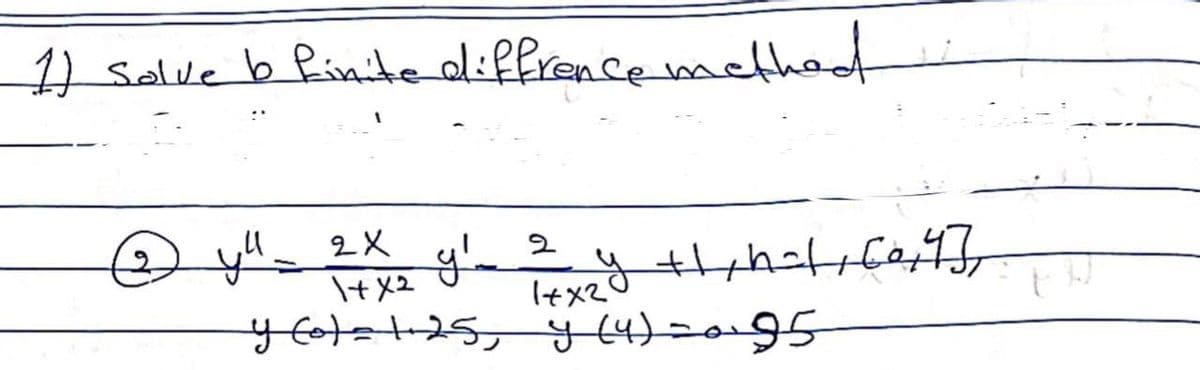 1) Solve b finite diffrence method
② y'' = 2x/1+x2 y' - 2/1+x2 y + 1, h=1, [0,4],
y(0) = 1.25, y(4) = 0.95